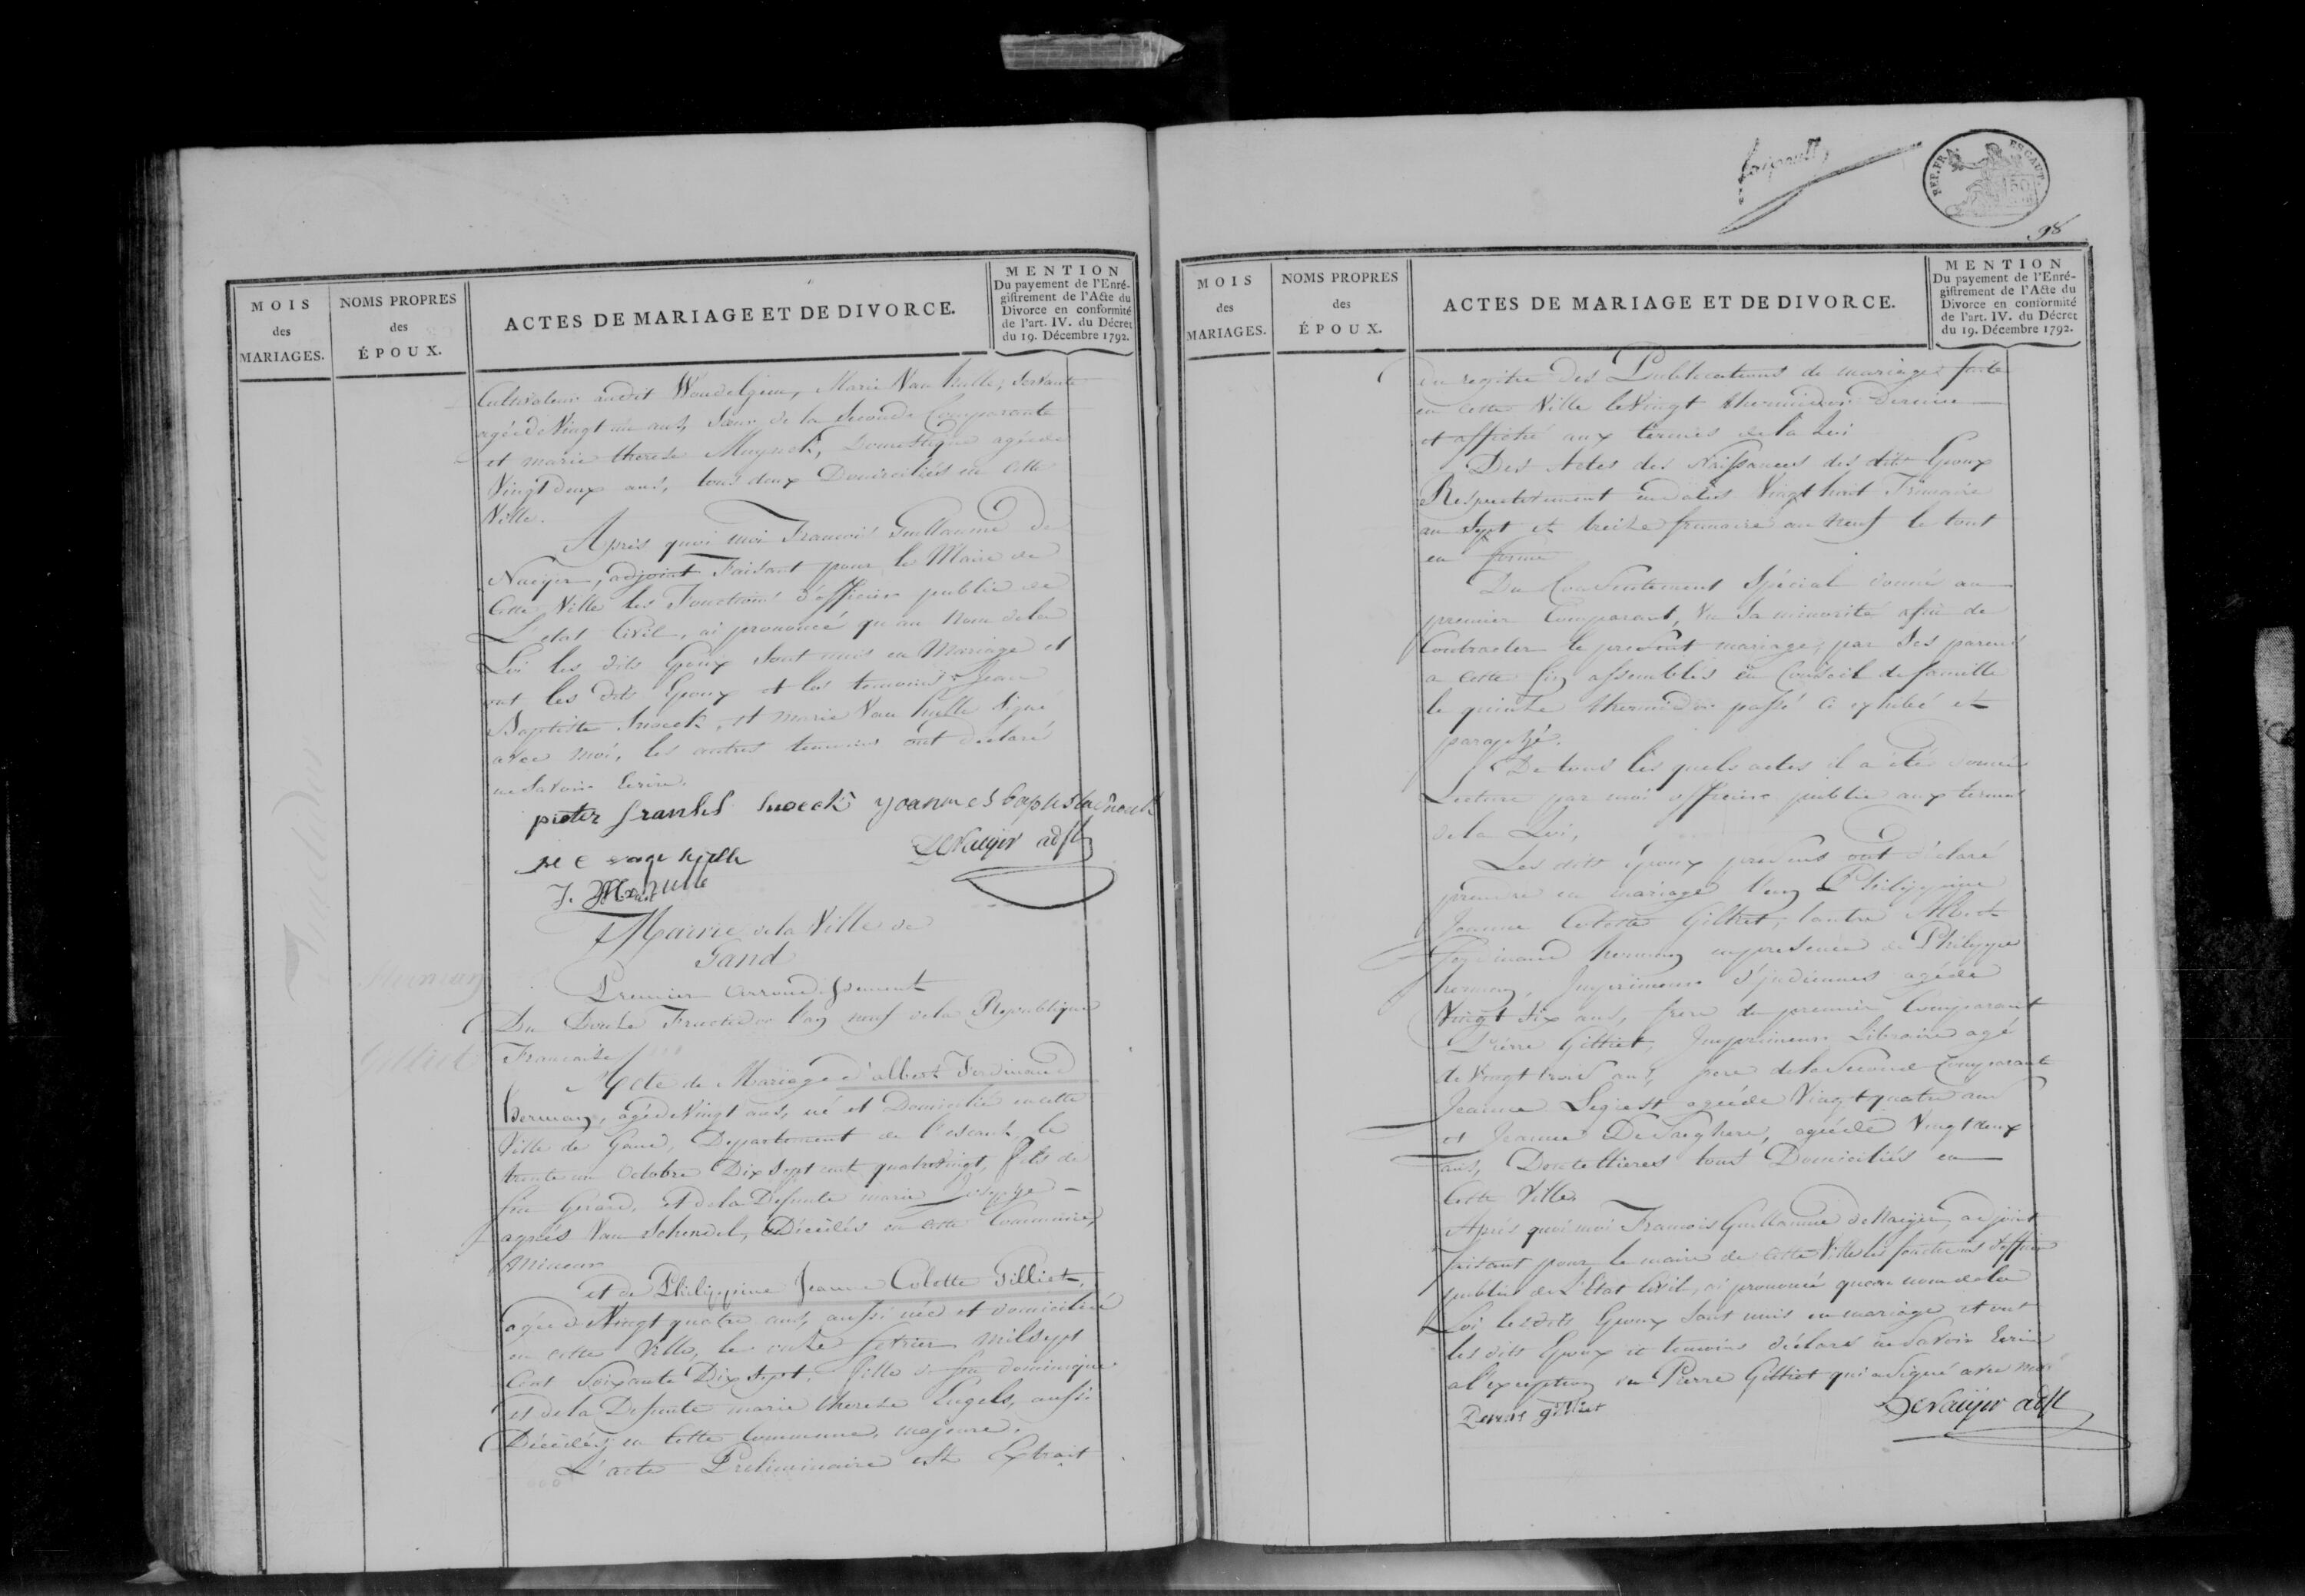 MOIS
des
MARIAGES.
NOMS PROPRES
des
ÉPOUX.
ACTES DE MARIAGE ET DE DIVORCE.
MENTION
Du payement de l'Enré-
giſtrement de l'Acte du
Divorce en conformité
de l'art. IV. du Décret
du 19. Décembre 1792.
Cultivateur audit Wondelgem, Marie Van hulle, servante
agée de Vingt un ans, sœur de la seconde Comparante
et marie therese Muynck, Domestique agée de
Vingt deux ans, tous deux Domiciliés en cette
Ville.
Après quoi moi Francois Guillaume De
Naeyer, adjoint Faisant pour le Maire de
Cette Ville les Fonctions d'officier public de
L'etat Civil, ai prononcé qu'au nom de la
Loi les dits Epoux sont unis en Mariage et
ont les dits Epoux et les temoins Jean
Baptiste Snoeck, et Marie Van hulle signé
avec moi, les autres temoins ont declaré
ne savoir Ecrire.
pieter fransies snoeck yoannes baptista snoeck
DeNaeyer adjt
Mairie de la Ville de
Gand
Premier Arrondissement
Herman
Gilliet
Du Fructidor l'an neuf de la Republique
Francaise
Acte de Mariage d'albert Ferdinand
Herman, agé de Vingt ans, né et Domicilié en cette
Ville de Gand, Departement de l'escaut, le
trente un Octobre Dix sept cent quatrevingt, fils de
feu Gerard, et de la Defunte marie
agnès Van Schendel, Décédés en cette Commune,
Mineur
et de Philippine Jeanne Colette Gilliet,
agée de Vingt quatre ans, aussi née et domiciliée
en cette Ville, le onze fevrier mil sept
Cent Soixante Dix Sept, fille de feu dominique
et de la Defunte marie therese Engels, aussi
Décédés en cette Commune, majeure.
L'acte Preliminaire est Extrait
REP. FRA. ESCAUT.
98
MOIS
des
MARIAGES.
NOMS PROPRES
des
ÉPOUX.
ACTES DE MARIAGE ET DE DIVORCE.
MENTION
Du payement de l'Enré-
giſtrement de l'Acte du
Divorce en conformité
de l'art. IV. du Décret
du 19. Décembre 1792.
du registre des Publications de mariages faite
en cette Ville le Vingt thermidor Dernier
et affiché aux termes de la Loi
Des Actes des Naissances des dits Epoux
Respectivement en dates Vingt huit Frimaire
an sept et treize frimaire an neuf le tout
en forme
Du Consentement Spécial donné au
premier Comparant, Vu sa minorité afin de
Contracter le present mariage, par ses parens
a cette fin assemblés en Conseil de famille
le quinze thermidor passé ci exhibé et
paraphé.
De tous les quels actes il a été donné
Lecture par moi officier public aux termes
de la Loi,
Les dits Epoux presens ont déclaré
prendre en mariage l'un Philippine
Jeanne Colette Gilliet, l'autre Albert
Ferdinand herman en presence de Philippe
herman, Imprimeur d'indiennes agé de
Vingt six ans, frere du premier Comparant
Pierre Gilliet, Imprimeur Libraire agé
de Vingt trois ans, frere de la Seconde Comparante
Jeanne Segiest agée de Vingt quatre ans
et Jeanne DeSaeghere, agée de Vingt deux
ans, Dentellieres tous Domiciliés en
Cette Ville.
Après quoi moi Francois Guillaume DeNaeyer, adjoint
faisant pour le maire de cette Ville les fonctions d'officier
public de L'Etat Civil, ai prononcé qu'au nom de la
Loi les dits Epoux sont unis en mariage et ont
les dits Epoux et temoins déclaré ne savoir Ecrire
a l'exception de Pierre Gilliet qui a signé avec moi
gilliet
DeNaeyer adjt